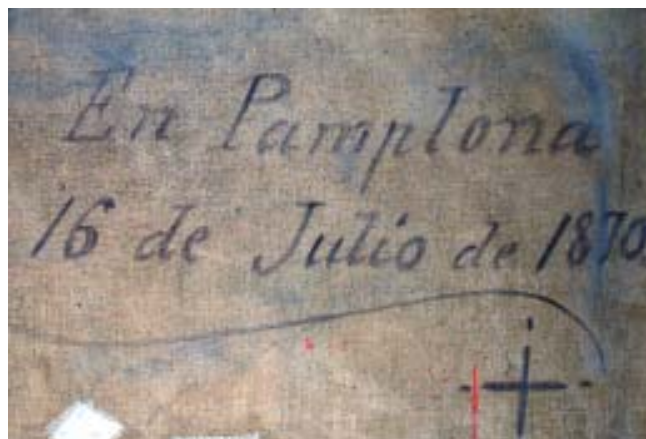 En Pamplona
16 de Julio de 1870